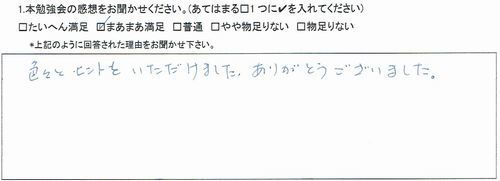 1.本勉強会の感想をお聞かせください。(あてはまる□1つに✔を入れてください)
□たいへん満足 ☑まあまあ満足 □普通 □やや物足りない □物足りない
*上記のように回答された理由をお聞かせ下さい。
色々とヒントをいただけました。ありがとうございました。